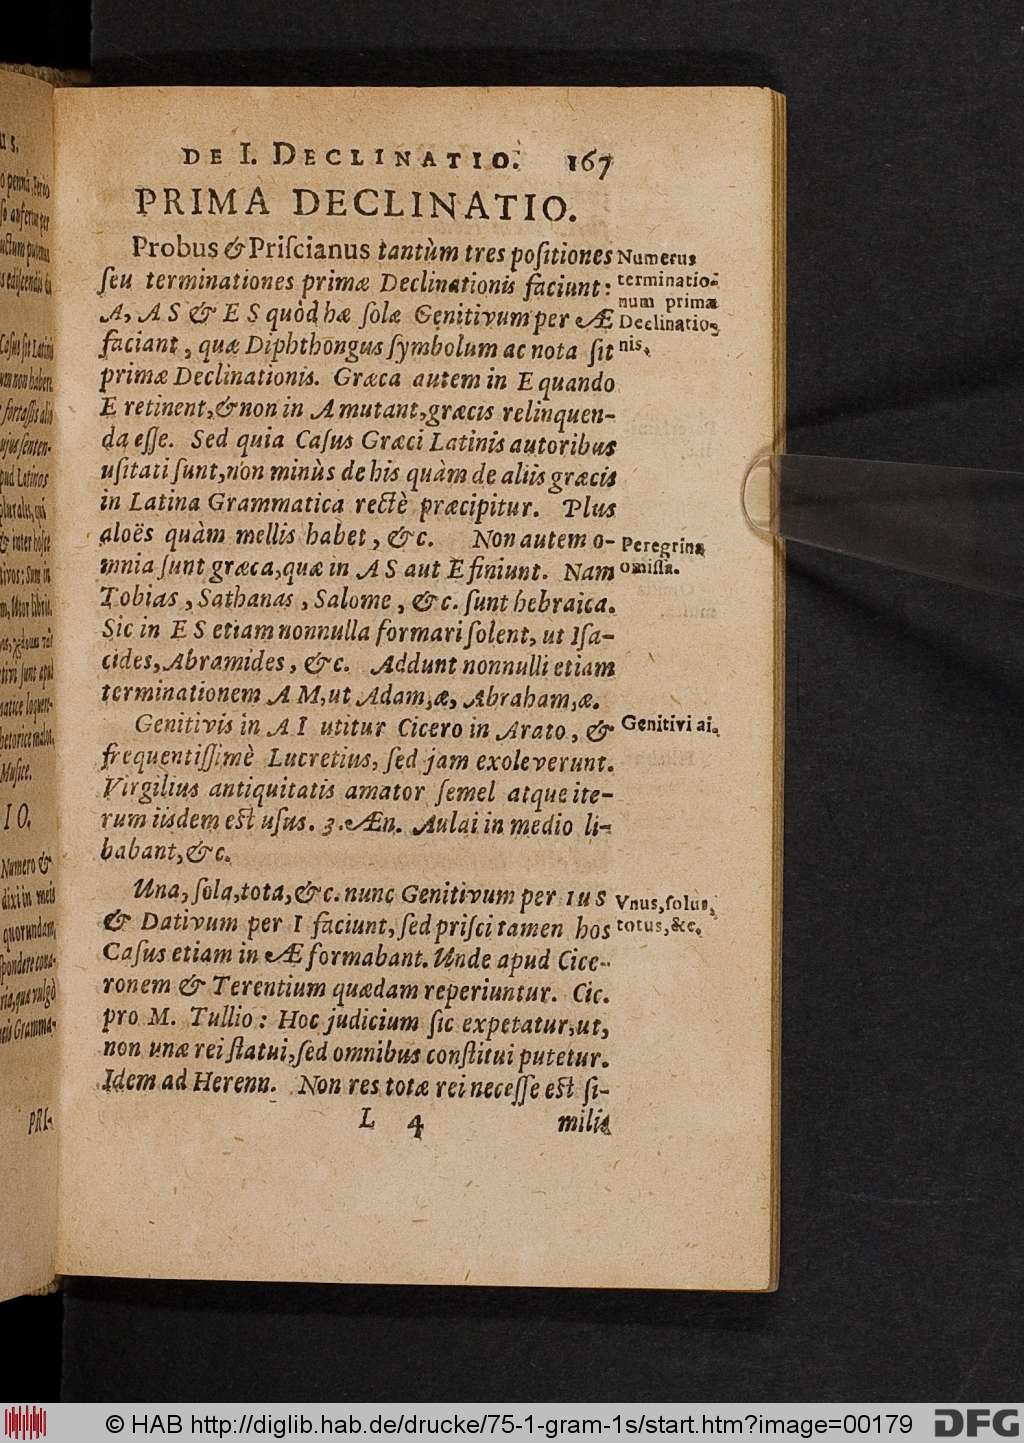 DE I. DECLINATIO. 167
PRIMA DECLINATIO.
Probus & Priſcianus tantùm tres poſitiones
ſeu terminationes primæ Declinationis faciunt:
A, AS & ES quòd hæ ſolæ Genitivum per Æ
faciant, quæ Diphthongus ſymbolum ac nota ſit
primæ Declinationis. Græca autem in E quando
E retinent, & non in A mutant, græcis relinquen-
da eſſe. Sed quia Caſus Græci Latinis autoribus
uſitati ſunt, non minùs de his quàm de aliis græcis
in Latina Grammatica rectè præcipitur. Plus
aloës quàm mellis habet, &c. Non autem o-
mnia ſunt græca, quæ in AS aut E finiunt. Nam
Tobias, Sathanas, Salome, &c. ſunt hebraica.
Sic in ES etiam nonnulla formari ſolent, ut Iſa-
cides, Abramides, &c. Addunt nonnulli etiam
terminationem AM, ut Adam, æ, Abraham, æ.
Genitivis in AI utitur Cicero in Arato, &
frequentiſſimè Lucretius, ſed jam exoleverunt.
Virgilius antiquitatis amator ſemel atque ite-
rum iisdem eſt uſus. 3. Æn. Aulai in medio li-
babant, &c.
Una, ſola, tota, &c. nunc Genitivum per IUS
& Dativum per I faciunt, ſed priſci tamen hos
Caſus etiam in Æ formabant. Unde apud Cice-
ronem & Terentium quædam reperiuntur. Cic.
pro M. Tullio: Hoc judicium ſic expetatur, ut,
non unæ rei ſtatui, ſed omnibus conſtitui putetur.
Idem ad Herenn. Non res totæ rei neceſſe eſt ſi-
L 4 milis
Numerus
terminatio-
num primæ
Declinatio-
nis.
Peregrina
omiſſa.
Genitivi ai.
Vnus, ſolus,
totus, &c.
PRI-
IO.
Muſice.
Numero &
dixi in meis
quorundam,
© HAB http://diglib.hab.de/drucke/75-1-gram-1s/start.htm?image=00179
DFG